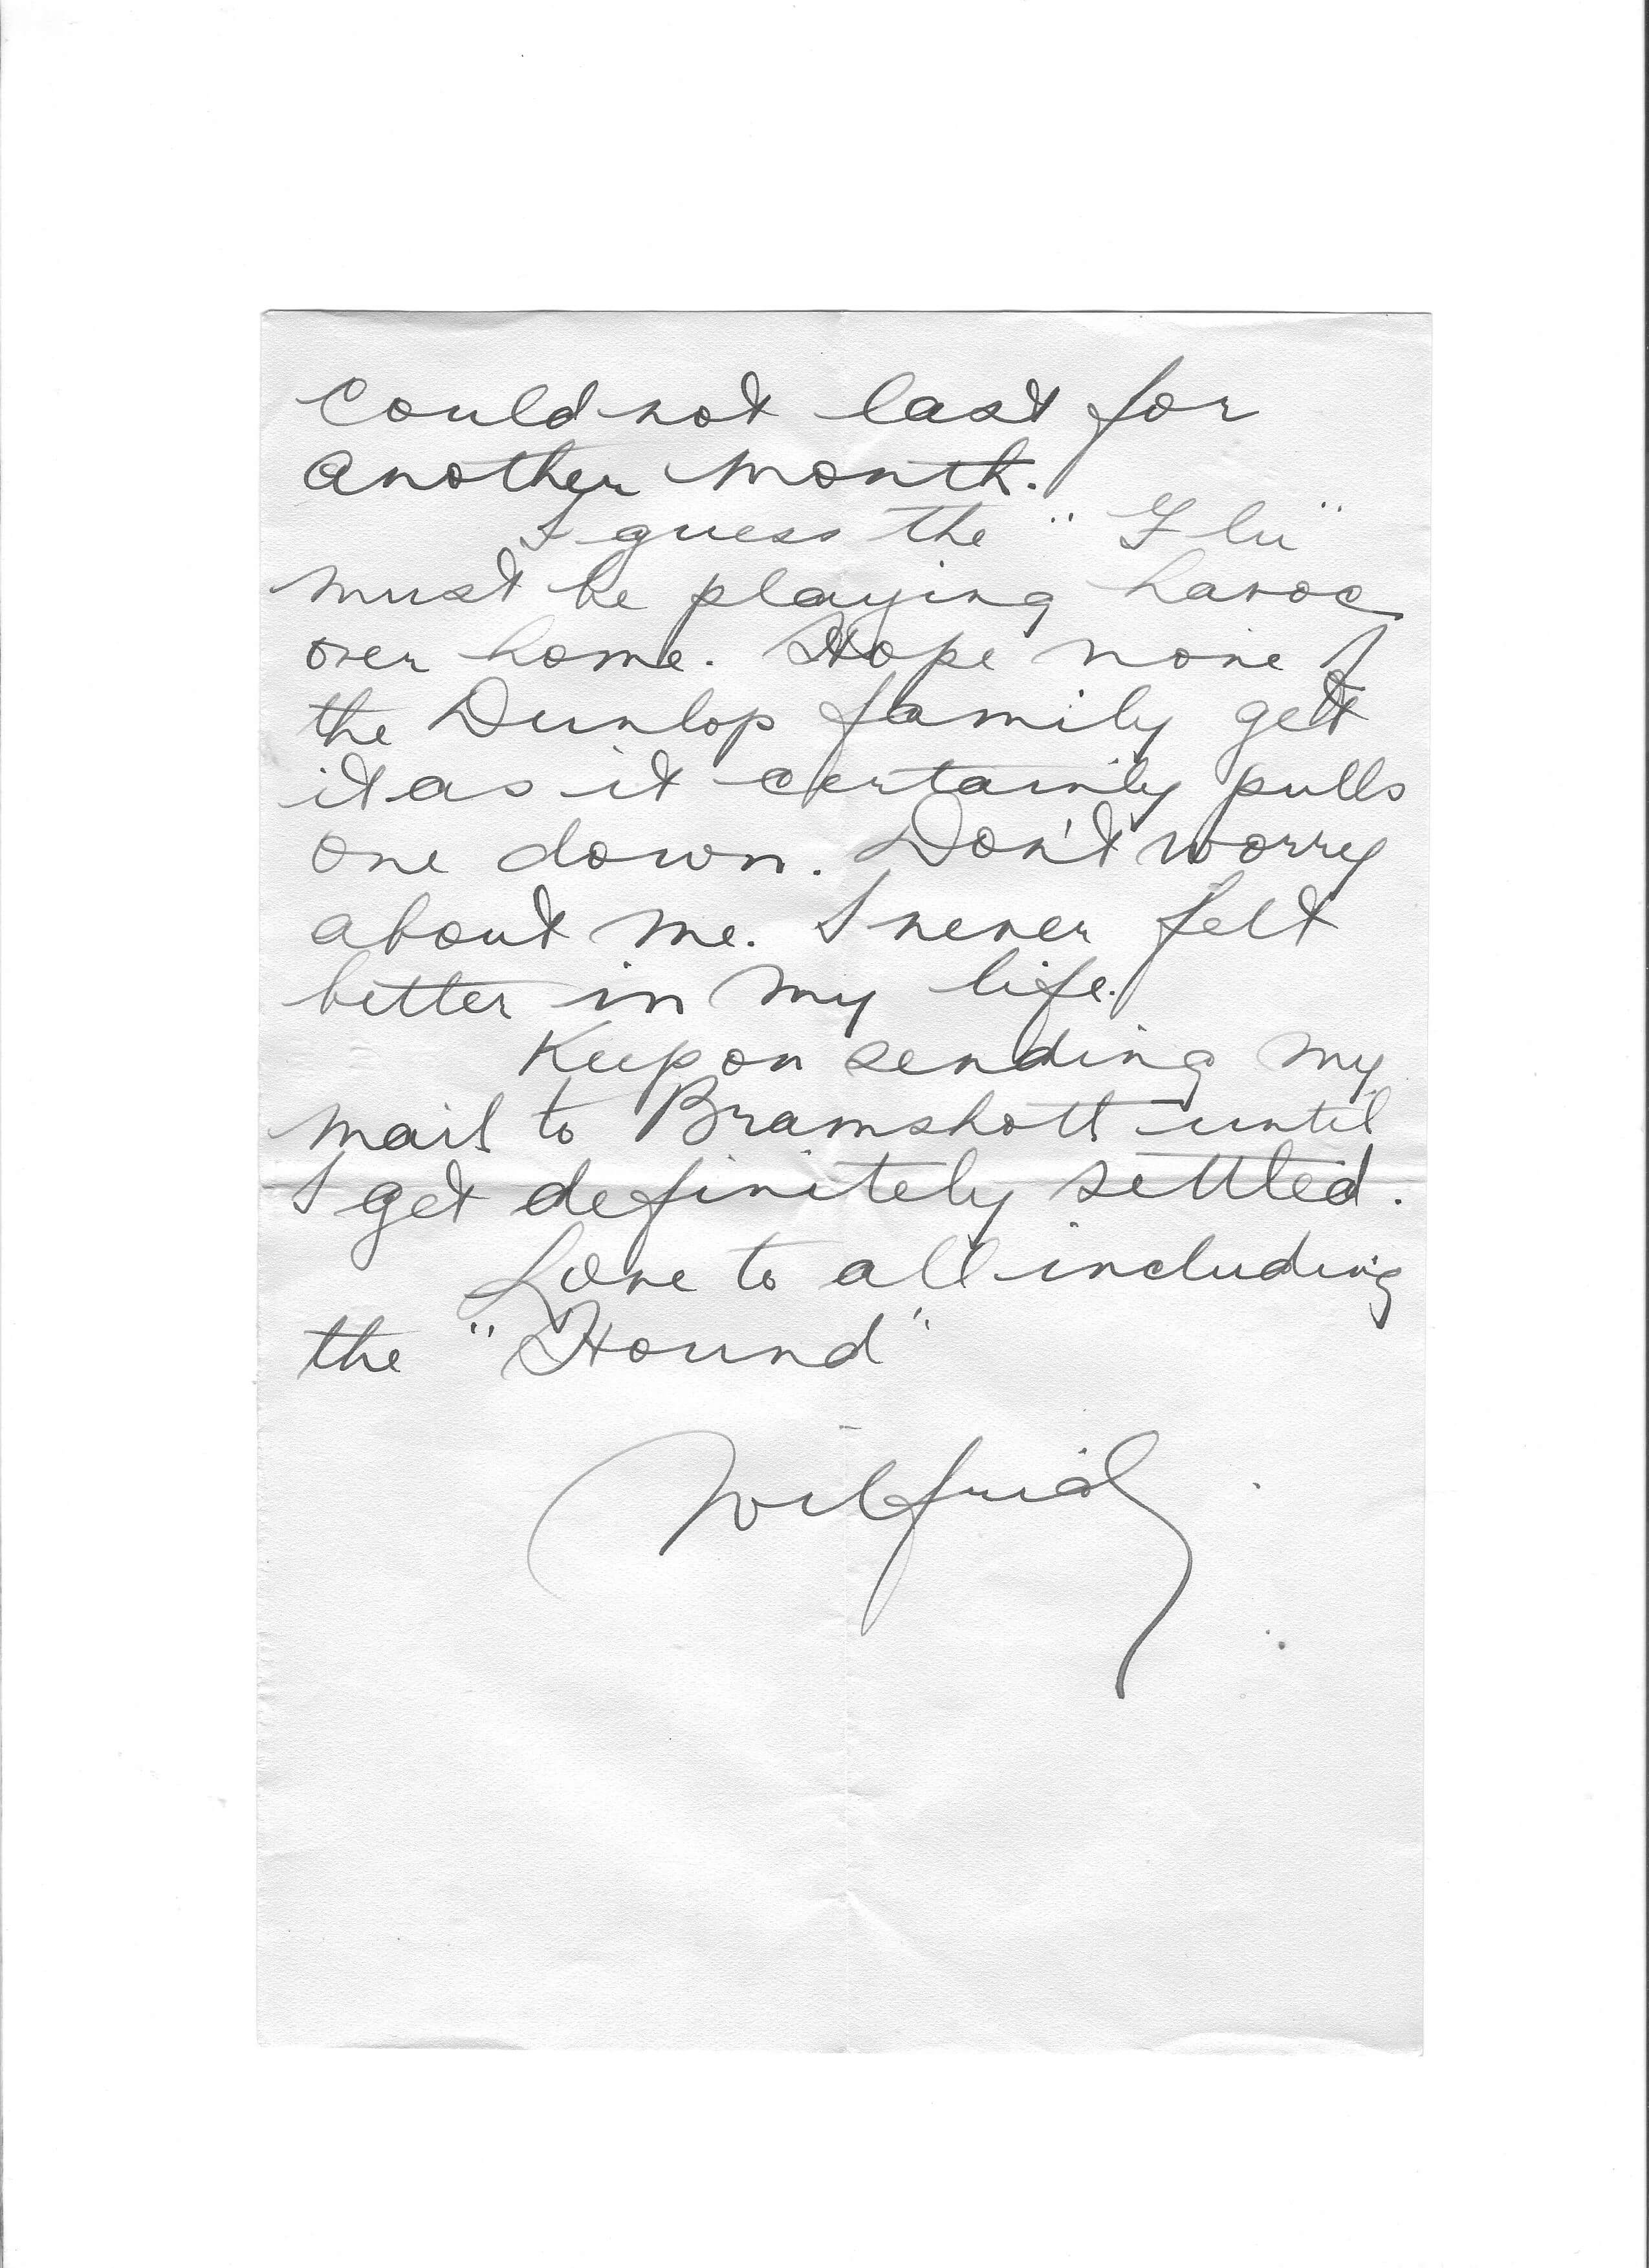 Could not last for
another month.
I guess the "Flu"
must be playing havoc
over home. Hope none of
the Dunlop family get
it as it certainly pulls
one down. Don't worry
about me. I never felt
better in my life.
Keep on sending my
mail to Bramshott until
I get definitely settled.
Love to all including
the "Hound"
Wilfrid